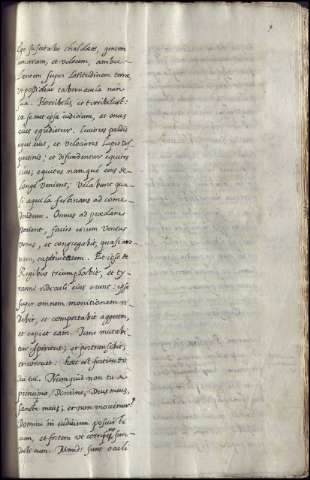 ego suscitabo chaldæos, gentem
amaram, et velocem, ambu-
lantem super latitudinem terræ
ut possideat tabernacula non
sua. Horribilis, et terribilis est:
ex se met ipsa iudicium, et onus
eius egredietur. Leuiores pardis
equi eius, et velociores lupis ves-
pertinis; et diffundentur equites
eius; equites namque eius de
longe venient, volabunt qua
si aquila festinans ad come-
dendum. Omnes ad prædam
venient, facies eorum ventus
vrens, et congregabit, quasi are-
nam, captiuitatem. Et ipse de
Regibus triumphabit, et ty-
ranni ridiculi eius erunt: ipse
super omnem munitionem ri-
debit, et comportabit aggerem,
et capiet eam. Tunc mutabi-
tur spiritus, et pertransibit,
et corruet: hæc est fortitudo
dei eius. Nunquid non tu a
principio, Domine, Deus meus,
sancte meus, et non moriemur?
Domine in iudicium posuisti
eum, et fortem ut corriperes fun-
dasti eum. Mundi sunt oculi